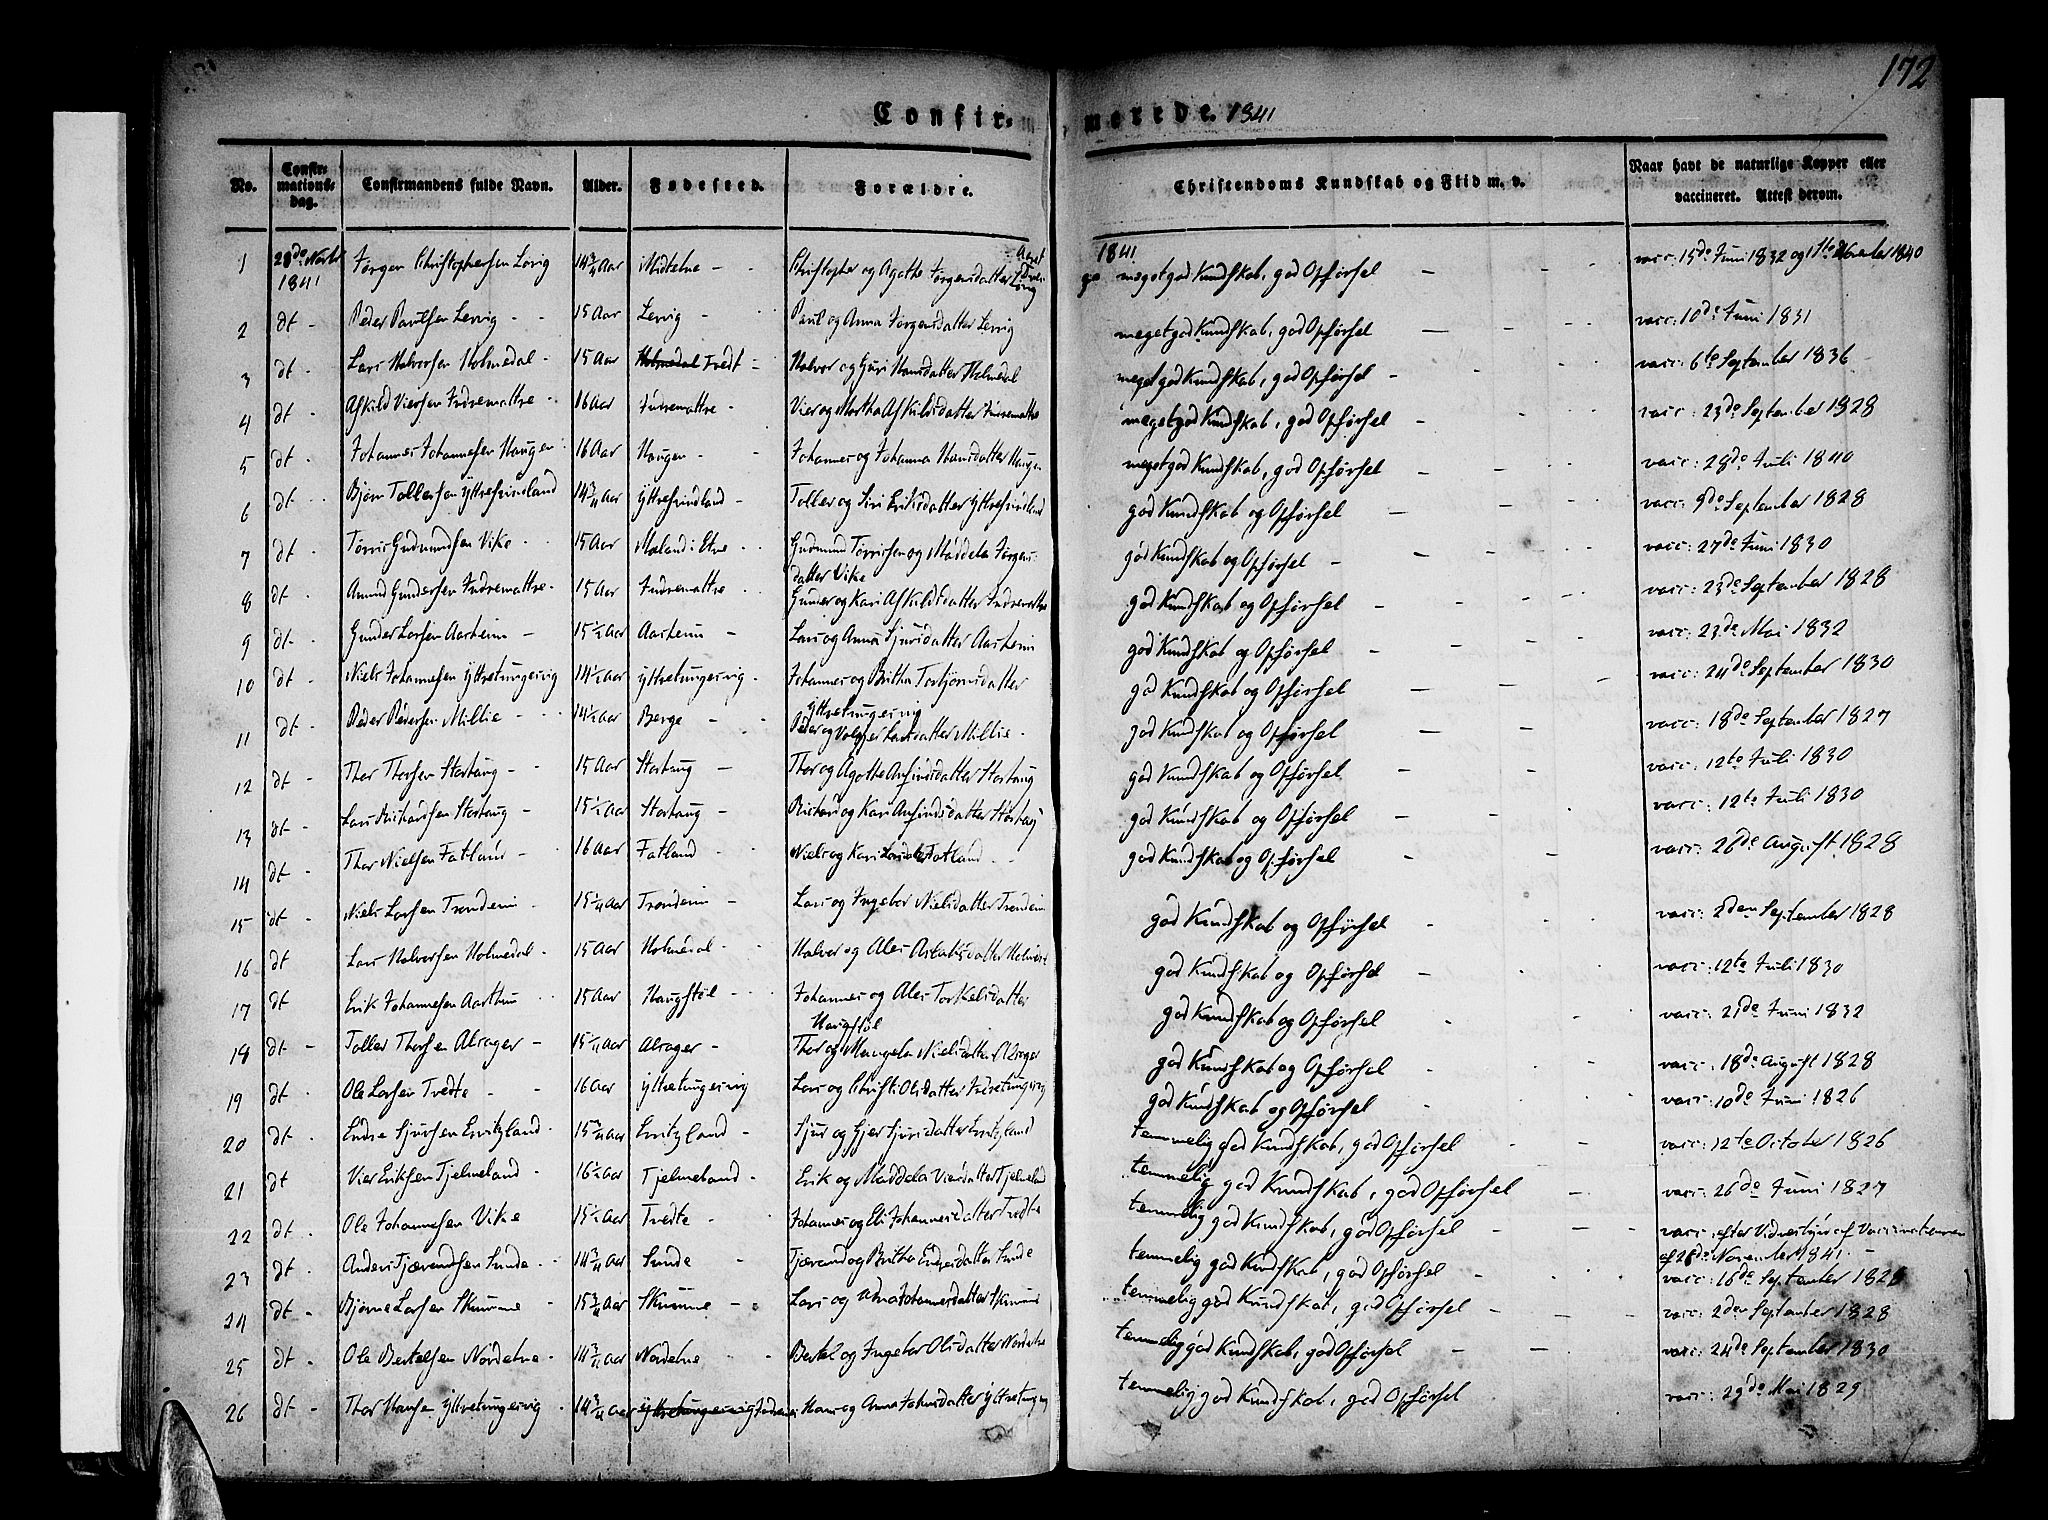 172
Confir-
merede. 1841
No.
Confir-
mations-
dag.
Confirmandens fulde Navn.
Alder.
Fødested.
Forældre.
Christendoms Kundskab og Flid m. v.
Naar havt de naturlige Kopper eller
vaccineret. Attest derom.
1 28de Novbr 1841 Jørgen Christophersen 14¾ Aar Midtetne - Christopher og Agathe Jørgensdatter 1841 meget god Kundskab, god Opførsel - vacc: 15de Juni 1832 og 1ste November 1840
2 dt - Peder Paulsen Lervig - 15 Aar Lervig - Paul og Anna Jørgensdatter Lervig meget god Kundskab, god Opførsel - vacc: 10de Juni 1831
3 dt - Lars Halvorsen Holmedal - 15 Aar Holmedal Tvedt - Halvor og Guri Hansdatter Holmedal meget god Kundskab, god Opførsel - vacc: 6te September 1836
4 dt - Askild Viersen Indremattre - 16 Aar Indremattre - Vier og Martha Askildsdatter Indremattre meget god Kundskab, god Opførsel - vacc: 23de September 1828
5 dt - Johannes Johannesen Haugen - 16 Aar Haugen - Johannes og Johanna Hansdatter Haugen meget god Kundskab, god Opførsel - vacc: 28de Juli 1840
6 dt - Bjørn Tollefsen 14¾ Aar - Tollev og Siri Eriksdatter god Kundskab og Opførsel - vacc: 9de September 1828
7 dt - Tørris Gudmundsen Vike - 15 Aar Mæland i Etne - Gudmund Tørrissen og Maddela Jørgens-
datter Vike god Kundskab og Opførsel - vacc: 27de Juni 1830
8 dt - Amund Gundersen Indremattre - 15 Aar Indremattre - Gunder og Kari Askildsdatter Indremattre god Kundskab og Opførsel - vacc: 23de September 1828
9 dt - Gunder Larsen Aarheim - 15½ Aar Aarheim - Lars og Anna Sjursdatter Aarheim god Kundskab og Opførsel - vacc: 23de Mai 1832
10 dt - Niels Johannesen Yttretungesvig 14½ Aar Yttretungesvig - Johannes og Britha Torbjørnsdatter
Yttretungesvig god Kundskab og Opførsel - vacc: 24de September 1830
11 dt - Peder Pedersen Millie - 14½ Aar Berge - Peder og Larsdatter Millie - god Kundskab og Opførsel - vacc: 18de September 1827
12 dt - Thor Thorsen Stortaug - 15 Aar Stortaug - Thor og Agathe Anfindsdatter Stortaug god Kundskab og Opførsel - vacc: 12te Juli 1830
13 dt - Lars Richardsen Stortaug - 15½ Aar Stortaug - Richard og Kari Anfindsdatter Stortaug god Kundskab og Opførsel - vacc: 12te Juli 1830
14 dt - Thor Nielsen Fatland - 16 Aar Fatland - Niels og Kari Fatland - god Kundskab og Opførsel - vacc: 26de August 1828
15 dt - Niels Larsen Trondeim 15¼ Aar Trondeim - Lars og Ingebor Nielsdatter Trondeim god Kundskab og Opførsel - vacc: 2den September 1828
16 dt Lars Halvorsen Holmedal - 15 Aar Holmedal - Halvor og Ales Holmedal god Kundskab og Opførsel - vacc: 12te Juli 1830
17 dt - Erik Johannesen Aarthun - 15 Aar Haugstøl - Johannes og Ales Torkelsdatter
Haugstøl god Kundskab og Opførsel - vacc: 21de Juni 1832
18 dt - Tollev Thorsen Alsager - 15¼ Aar Alsager - Thor og Mangela Nielsdatter Alsager god Kundskab og Opførsel - vacc: 18de August 1828
19 dt - Ole Larsen Tvedte - 16 Aar Yttretungesvig Lars og Christi Olsdatter god Kundskab og Opførsel - vacc: 10de Juni 1826
20 dt - Endre Sjursen - 15¾ Aar - Sjur og Gjer Sjursdatter temmelig god Kundskab, god Opførsel - vacc: 12te October 1826
21 dt Vier Eriksen Tjelmeland - 16½ Aar Tjelmeland - Erik og Maddela Viersdatter Tjelmeland temmelig god Kundskab, god Opførsel - vacc: 26de Juni 1827
22 dt - Ole Johannesen Vike 15½ Aar Tvedte - Johannes og Eli Johannesdatter Tvedte temmelig god Kundskab, god Opførsel - vacc: efter Vidnesbyrd af Vaccinateuren
af 26de November 1841 -
23 dt - Anders Tjærandsen Sunde - 14¾ Aar Sunde - Tjærand og Britha Endresdatter Sunde temmelig god Kundskab, god Opførsel - vacc: 16de September 1828
24 dt - Bjørne Larsen Skumme 15¾ Aar Skumme - Lars og Anna Johannesdatter Skumme temmelig god Kundskab, god Opførsel - vacc: 2den September 1828
25 dt - Ole Bertelsen Nordetne - 14¾ Aar Nordetne - Bertel og Ingebor Olsdatter Nordetne temmelig god Kundskab, god Opførsel - vacc: 24de September 1830
26 dt - Thor Hansen Yttretungesvig - 14¾ Aar Yttretungesvig Hans og Anna Johnsdatter Yttretungesvig temmelig god Kundskab, god Opførsel vacc: 29de Mai 1829